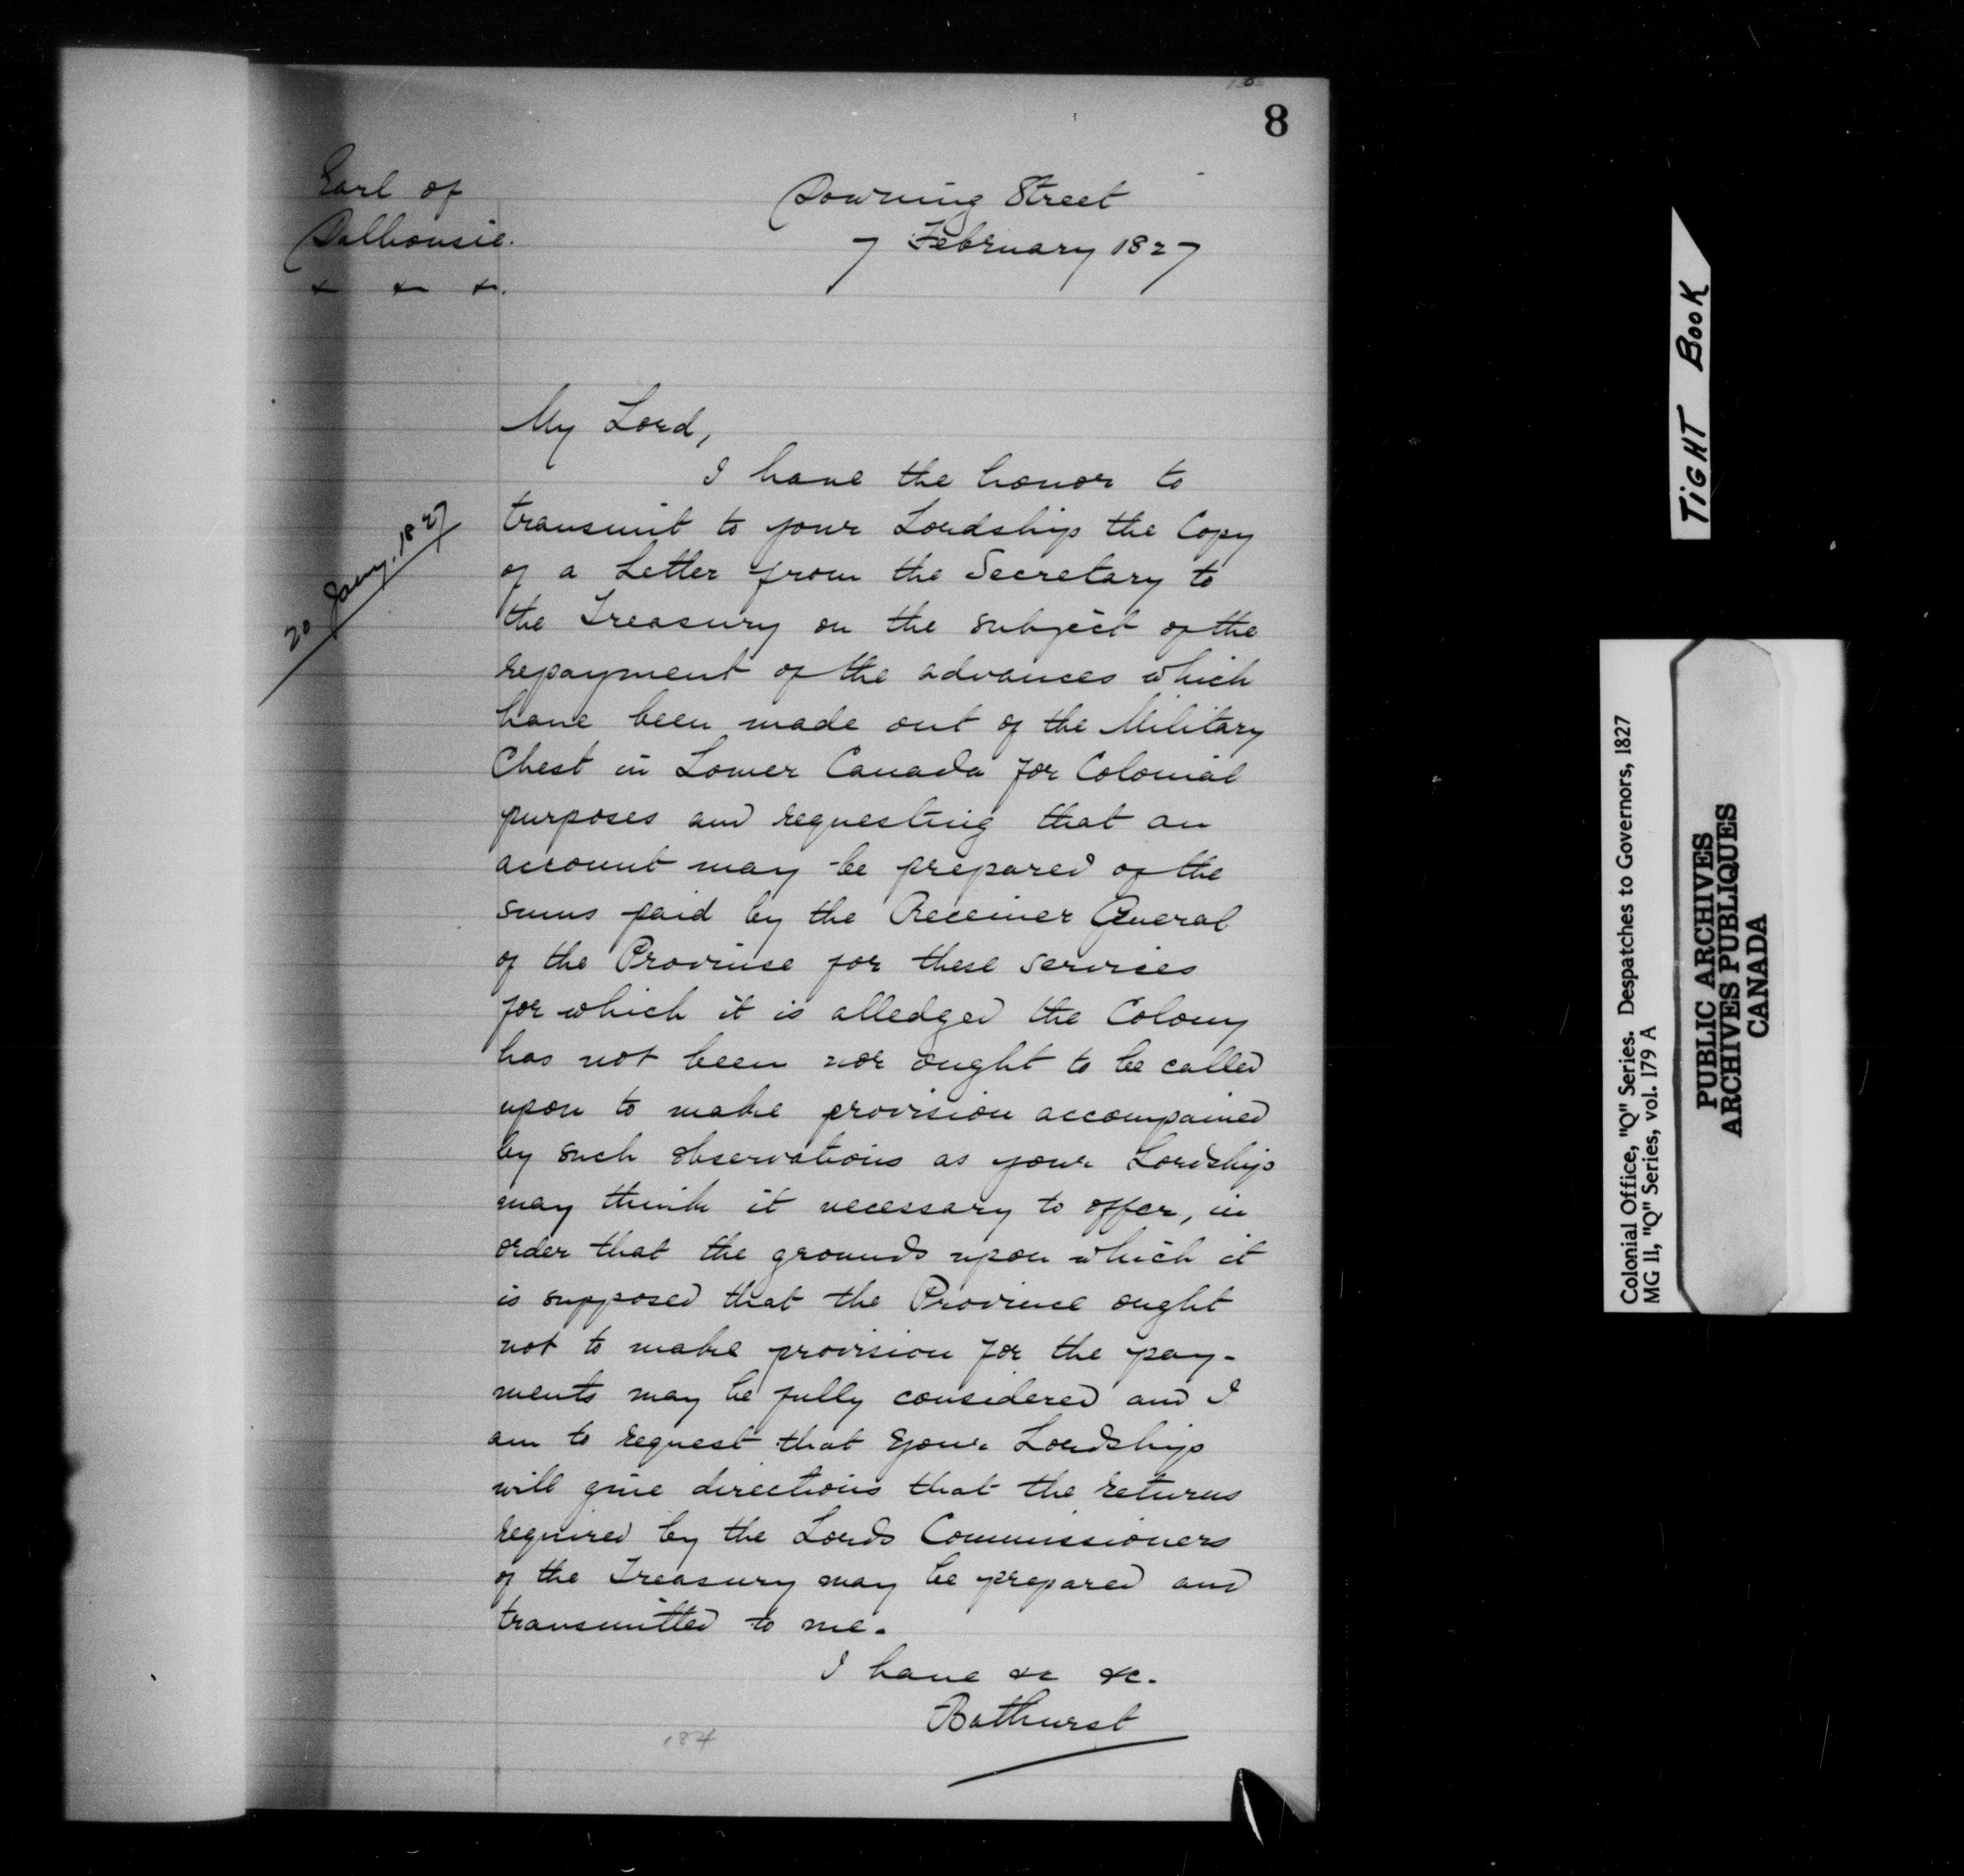 8
Earl of
Dalhousie.
Downing Street
7 February 1827
My Lord,
I have the honor to
transmit to your Lordship the Copy
of a Letter from the Secretary to
the Treasury on the subject of the
repayment of the advances which
have been made out of the Military
Chest in Lower Canada for Colonial
purposes and requesting that an
account may be prepared of the
sums paid by the Receiver General
of the Province for these services
for which it is alledged the Colony
has not been nor ought to be called
upon to make provision accompained
by such observations as your Lordship
may think it necessary to offer, in
order that the grounds upon which it
is supposed that the Province ought
not to make provision for the pay-
ments may be fully considered and I
am to request that your Lordship
will give directions that the returns
required by the Lords Commissioners
of the Treasury may be prepared and
transmitted to me.
I have &c &c.
Bathurst
20 Jany. 1827
184
TIGHT BOOK
Colonial Office, "Q" Series. Despatches to Governors, 1827
MG 11, "Q" Series, vol. 179 A
PUBLIC ARCHIVES
ARCHIVES PUBLIQUES
CANADA